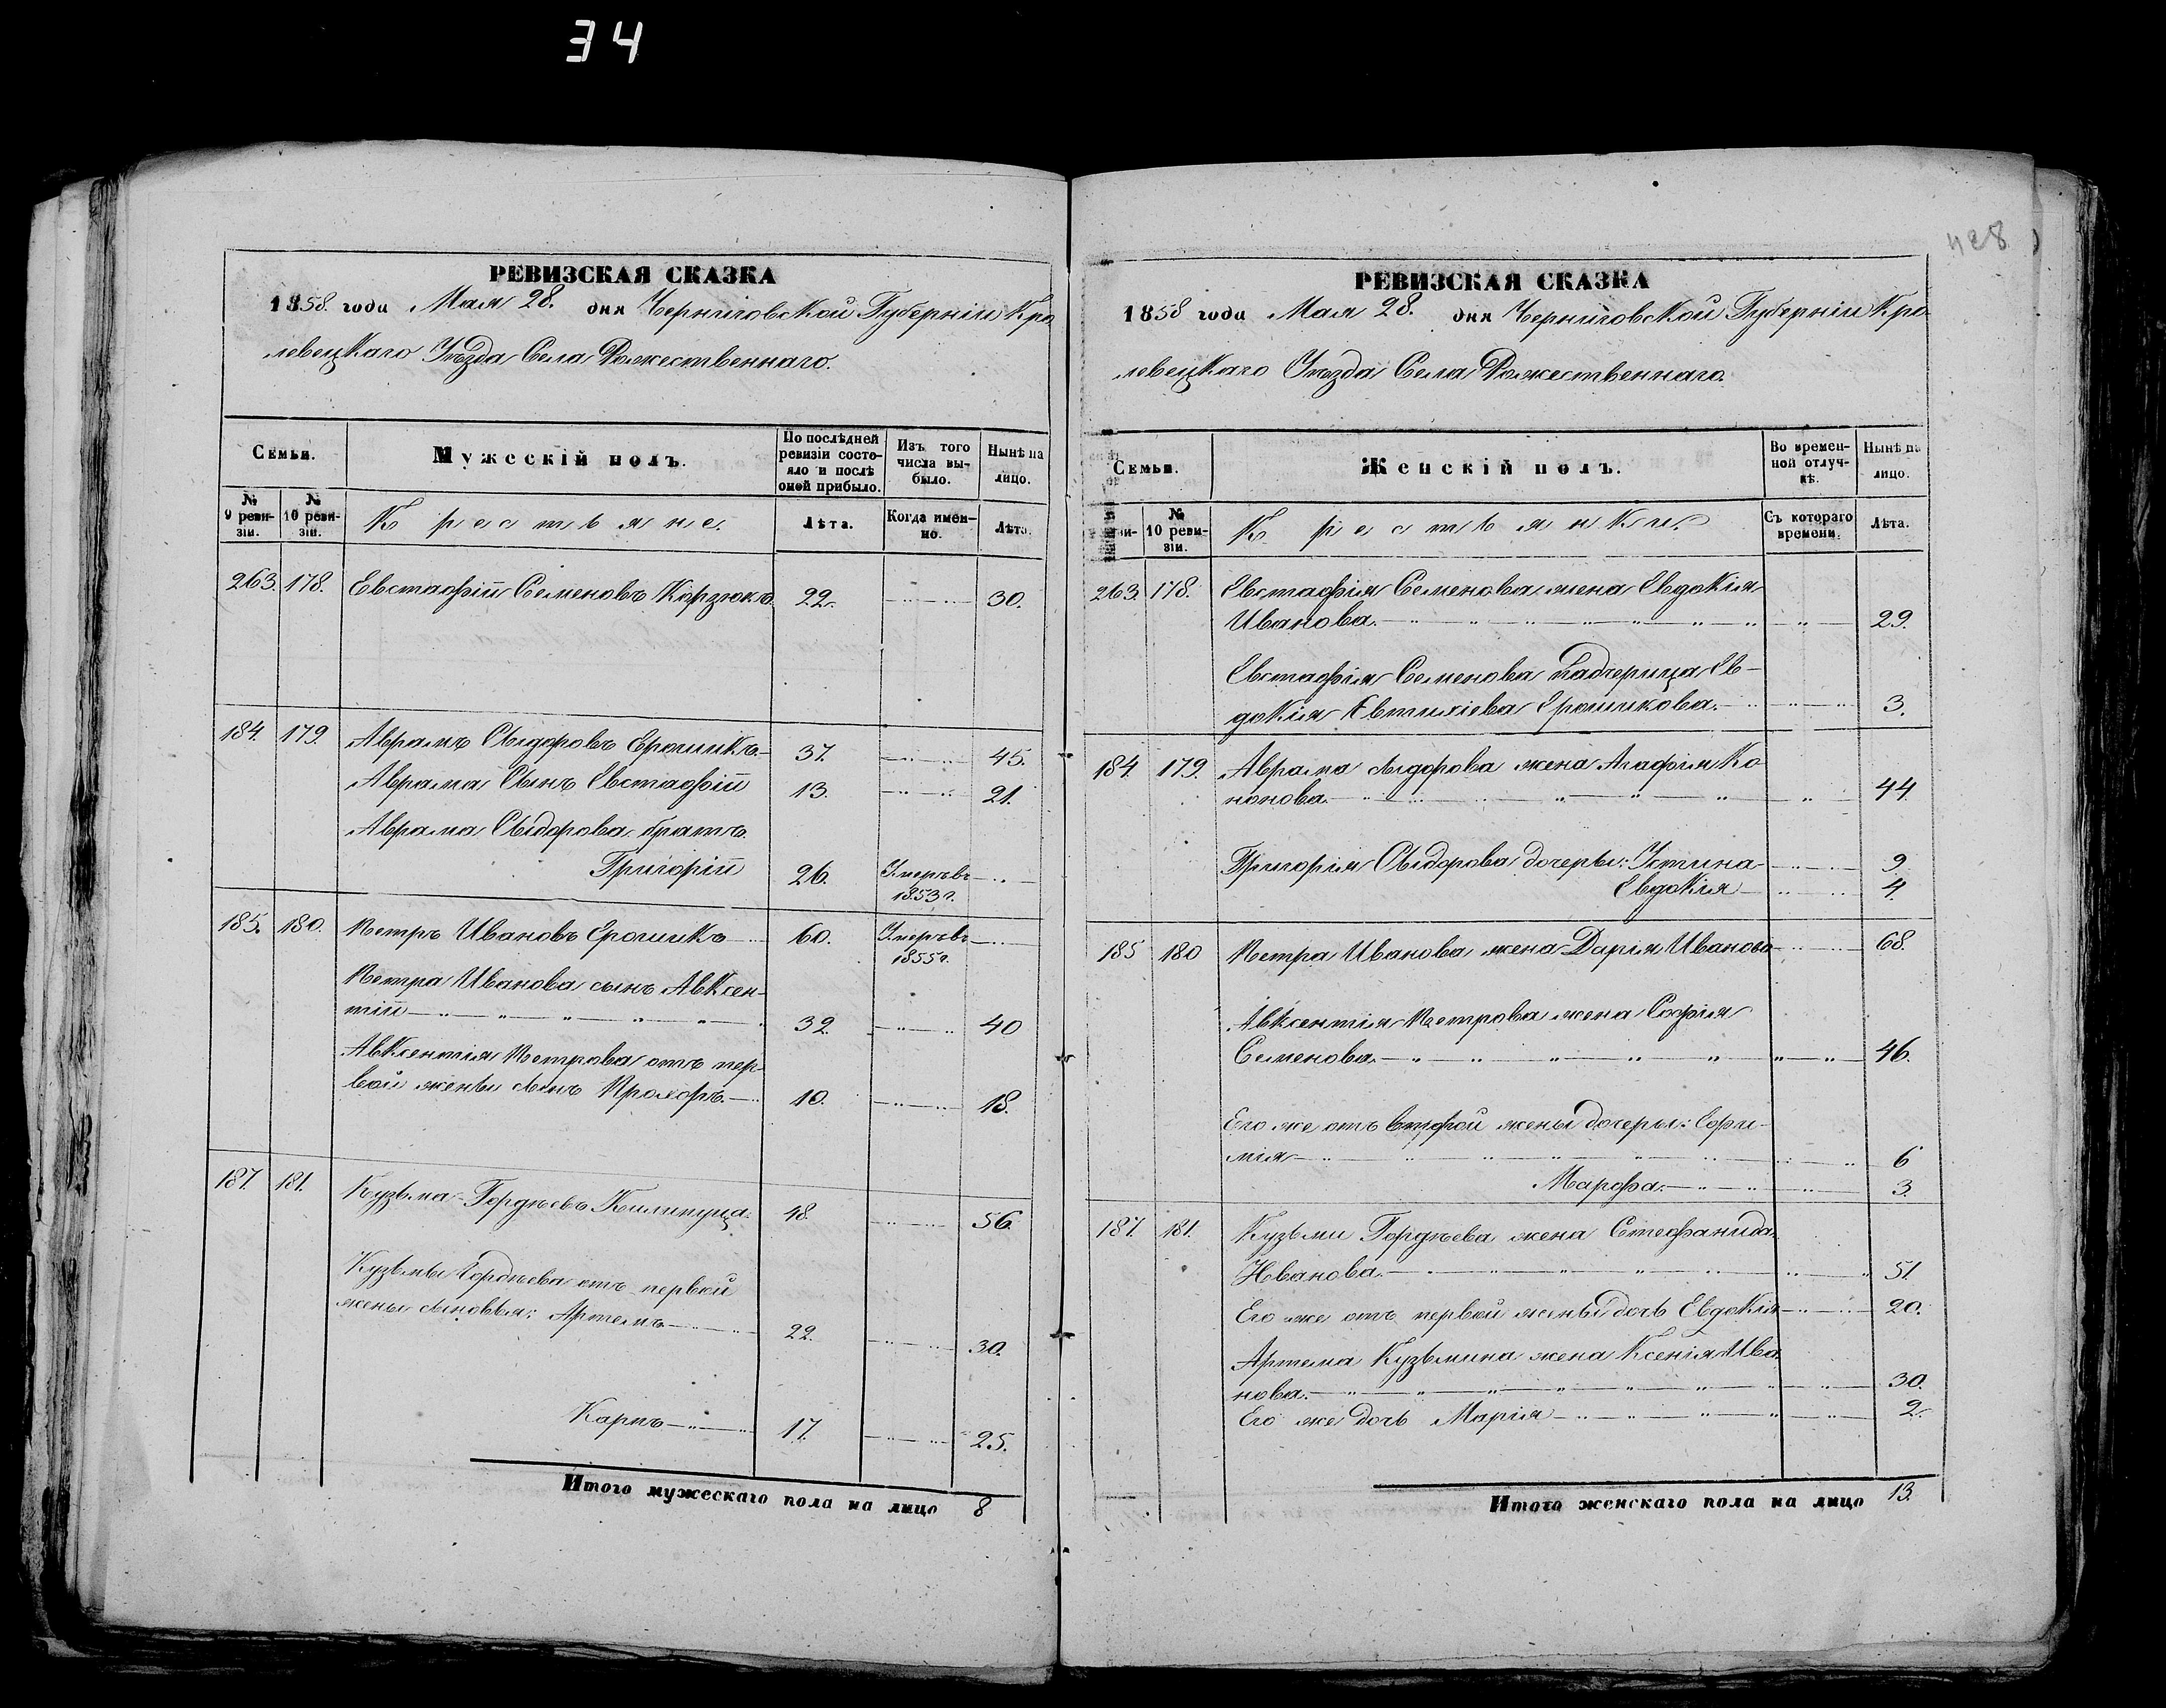 34
428
РЕВИЗСКАЯ СКАЗКА
1858. года Мая 28. дня Черниговской Губерніи Кро
левецкаго Уѣзда Села Рожественнаго.
Семьи.
Мужескій полъ.
По послѣдней ревизіи состояло и послѣ оной прибыло.
Изъ того числа выбыло.
Нынѣ на лицо.
№ 9 ревизіи.
№ 10 ревизіи.
Крестьяне.
Лѣта.
Когда именно.
Лѣта.
263. 178. Евстафій Семеновъ Корзюкъ 22. 30.
184. 179. Аврамъ Сыдоровъ Ерошикъ 37. 45.
Аврама Сынъ Евстафій 13. 21.
Аврама Сыдорова братъ
Григорій 26. Умеръ въ
1853 г.
185. 180. Петръ Ивановъ Ерошикъ 60. Умеръ въ
1855 г.
Петра Иванова сынъ Авксен-
тій 32. 40
Авксентія Петрова отъ пер-
вой жены сынъ Прохоръ 10. 18.
187. 181. Кузьма Гордѣевъ 48. 56.
Кузьмы Гордѣева отъ первой
жены сыновья: Артемъ 22. 30.
Карпъ 17. 25.
Итого мужескаго пола на лицо 8
РЕВИЗСКАЯ СКАЗКА
1858 года Мая 28. дня Черниговской Губерніи Кро-
левецкаго Уѣзда Села Рожественнаго.
Семьи.
Женскій полъ.
Во временной отлучкѣ.
Нынѣ на лицо.
№ 10 ревизіи.
Крестьянки.
Съ котораго времени.
Лѣта.
263. 178. Евстафія Семенова жена Евдокія
Иванова. 29.
Евстафія Семенова падчерица Ев-
докія Евтихіева Ерошикова. 3.
184. 179. Аврама Сыдорова жена Агафія Ко
нонова. 44.
Григорія Сыдорова дочеры: Устина 9.
Евдокія 4.
185 180 Петра Иванова жена Дарія Иванова 68
Авксентія Петрова жена Софія
Семенова. 46.
Его же отъ второй жены дочеры: Ефи-
мія 6
Марфа. 3.
187. 181. Кузьми Гордѣева жена Стефанида
Иванова. 51
Его же отъ первой жены дочь Евдокія 20.
Артема Кузьмина жена Ксенія Ива
нова. 30.
Его же дочь Марія 2.
Итого женскаго пола на лицо 13.